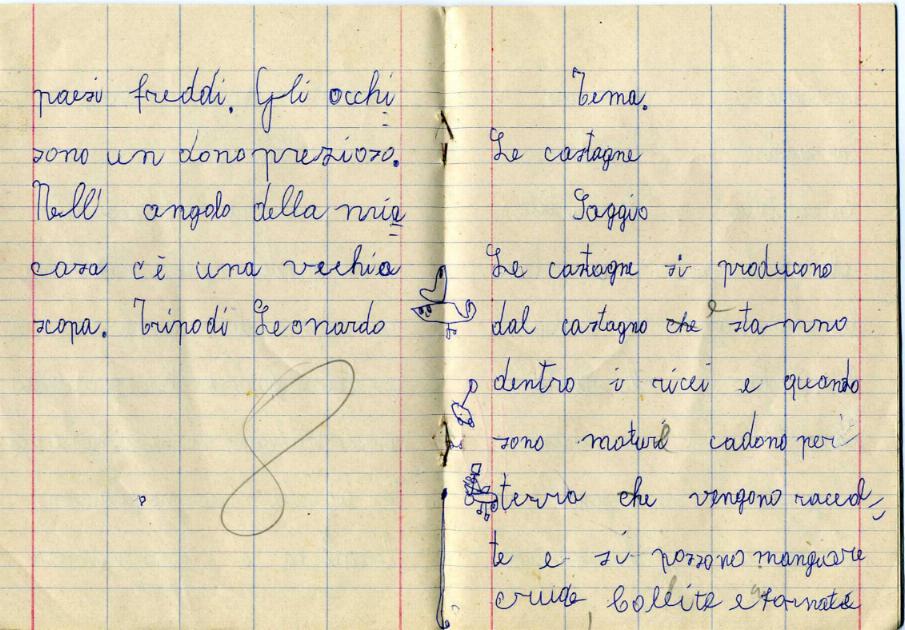 paesi freddi. Gli occhi
sono un dono prezioso.
Nell' angolo della mia
casa c'è una vechia
scopa. Tripodi Leonardo
8
Tema.
Le castagne
Saggio
Le castagne si producono
dal castagno che e stanno
dentro i ricci e quando
sono maturi cadono per
terra che vengono raccol=
te e si possono mangiare
crude bollite e fornate